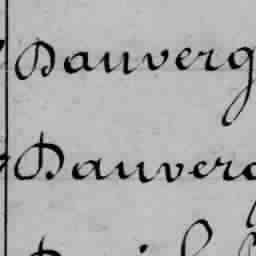 Dauverg
Dauverg